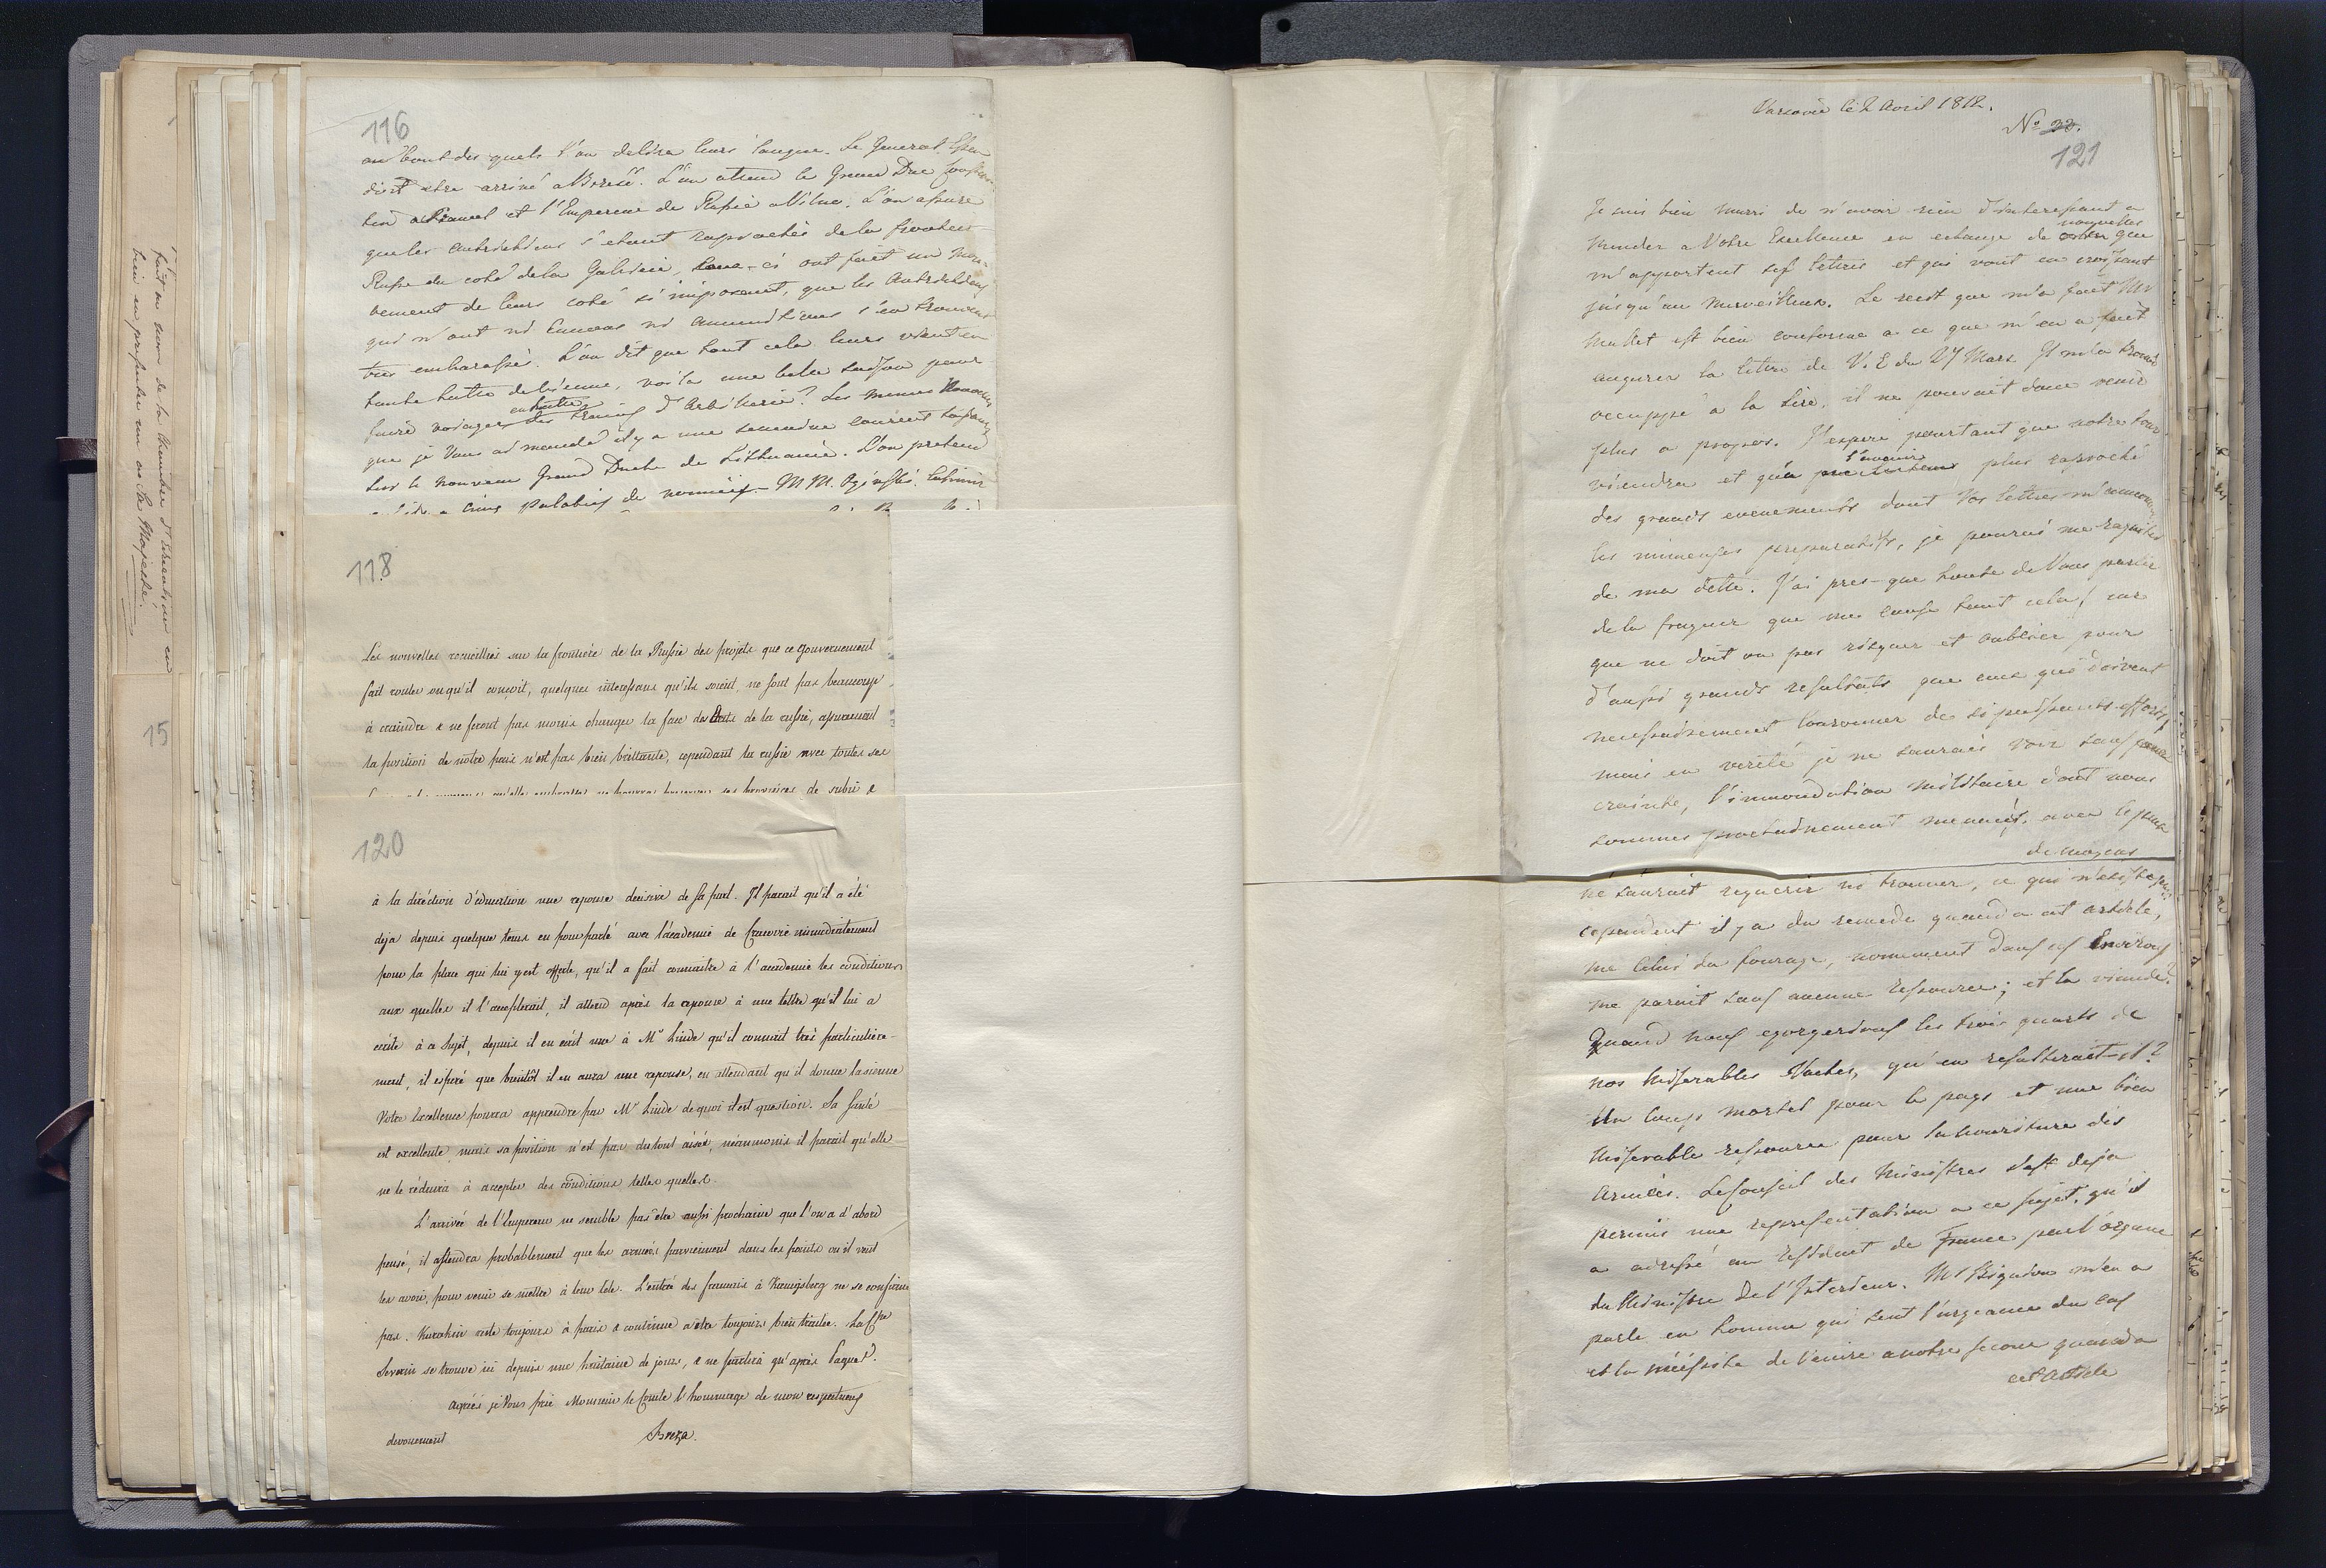 116
au bout des quels l'on deliera leurs langue. Le General Essen
doit etre arrivé a Brzesc. L'on attend le Grand Duc Constan-
tin a et l'Empereur de Russie a Vilna. L'on assure
que les Autrichiens s'etant raprochés de la frontiere
Russe du coté de la Galicie, ceux-ci ont fait un mou-
vement de leurs coté si imposant, que les Autrichiens
qui n'ont ni Canons ni amunitions s'en trouvent
très embarassés. L'on dit que tout cela leurs vient en
toute hatte de Vienne, voila une belle saison pour
faire voiager en hatte des trains d'Artillerie? Les memes
que je Vous ai mandé il y a une semaine courrent toujours
sur le nouveau Grand Duché de Lithuanie. L'on pretend
a cinq Palatins de nommés. MM. Oginski, Lubomir
118
Les nouvelles recueillies sur la frontière de la Russie des projets que ce gouvernement
fait couler ou qu'il conçoit, quelques interessans qu'ils soient, ne sont pas beaucoup
à craindre & ne feront pas moins changer la face des Etats de la russie, assurement
la position de notre pais n'est pas bien brillante, cependant la russie avec toutes ses
qu'elle embrasse ne pourra ses provinces de subir &
120
à la diréction d'éducation une reponse decisive de sa part. Il parait qu'il a été
deja depuis quelque tems en pourparlé avec l'academie de Cracovie immediatement
pour la place qui lui y est offerte, qu'il a fait connaitre à l'academie les conditions
aux quelles il l'accepterait, il attend après la reponse à une lettre qu'il lui a
ecrite à ce sujet, depuis il en écrit une à Mr Linde qu'il connait très particulière-
ment, il espère que bientôt il en aura une reponse, en attendant qu'il donne la sienne
Votre Excellence pourra apprendre par Mr Linde de quoi il est question. Sa santé
est excellente, mais sa position n'est pas du tout aisée, néanmoins il parait qu'elle
ne le réduira à accepter des conditions telles quelles.
L'arrivée de l'Empereur ne semble pas être aussi prochaine que l'on a d'abord
pensé, il attendra probablement que les armées parviennent dans les points ou il veut
les avoir, pour venir se mettre à leur tete. L'entrée des francais à Kœnigsberg ne se confirme
pas. Kurakin reste toujours à paris & continue a etre toujours bien traitée. La Ctsse
Severin se trouve ici depuis une huitaine de jours, & ne partira qu'après Paques.
agréés je Vous prie Monsieur le Comte l'hommage de mon respectueux
devouement
Breza.
Varsovie le 2 Avril 1812.
No 22.
121
Je suis bien marri de n'avoir rien d'interessant a
mander a Votre Excellence en echange de nouvelles que
m'apportent ses lettres et qui vont en croissant
jusqu'au merveilleux. Le recit que m'a fait Mr
Mallet est bien conforme a ce que m'en a fait
augurer la lettre de V. E du 27 Mars. Il m'a trouvé
occuppé a la lire, il ne pouvait donc venir
plus a propos. J'espere pourtant que notre tour
viendra et qu'a l'avenir plus raproché
des grands evenements dont Vos lettres m'annoncent
les immenses preparatifs, je pourai me raquiter
de ma dette. J'ai pres-que honte de Vous parler
de la frayeur que me cause tout cela! car
que ne doit on pas risquer et oublier pour
d'aussi grands resultats que ceux qui doivent
necessairement couronner de si puissants efforts,
mais en verité je ne saurais voir sans
crainte, l'innondation militaire dont nous
sommes prochainement menacés, avec le peu
de moyens
ne saurait requerir ni trouver, ce qui n'existe pas
cependant il y a du remede quand a cet article,
me celui du fourage, nomement dans ces Environs
me parait sans aucune ressource; et la viande?
Quand nous egorgerions les trois quarts de
nos miserables Vaches, qu'en resulterait-il?
Un coup mortel pour le pays et une bien
miserable ressource pour la nouriture des
Armées. Le Conseil des Ministres s'est deja
permis une representation a ce sujet, qu'il
a adressé au Resident de France par l'organe
du Ministre de l'Interieur. Mr Bignon m'en a
parlé en homme qui sent l'urgeance du cas
et la nécéssité de venire a notre secour quand a
cet article
fait au nom de la Chambre d'Education en
bien en presenter un ou Sa Majesté.
15